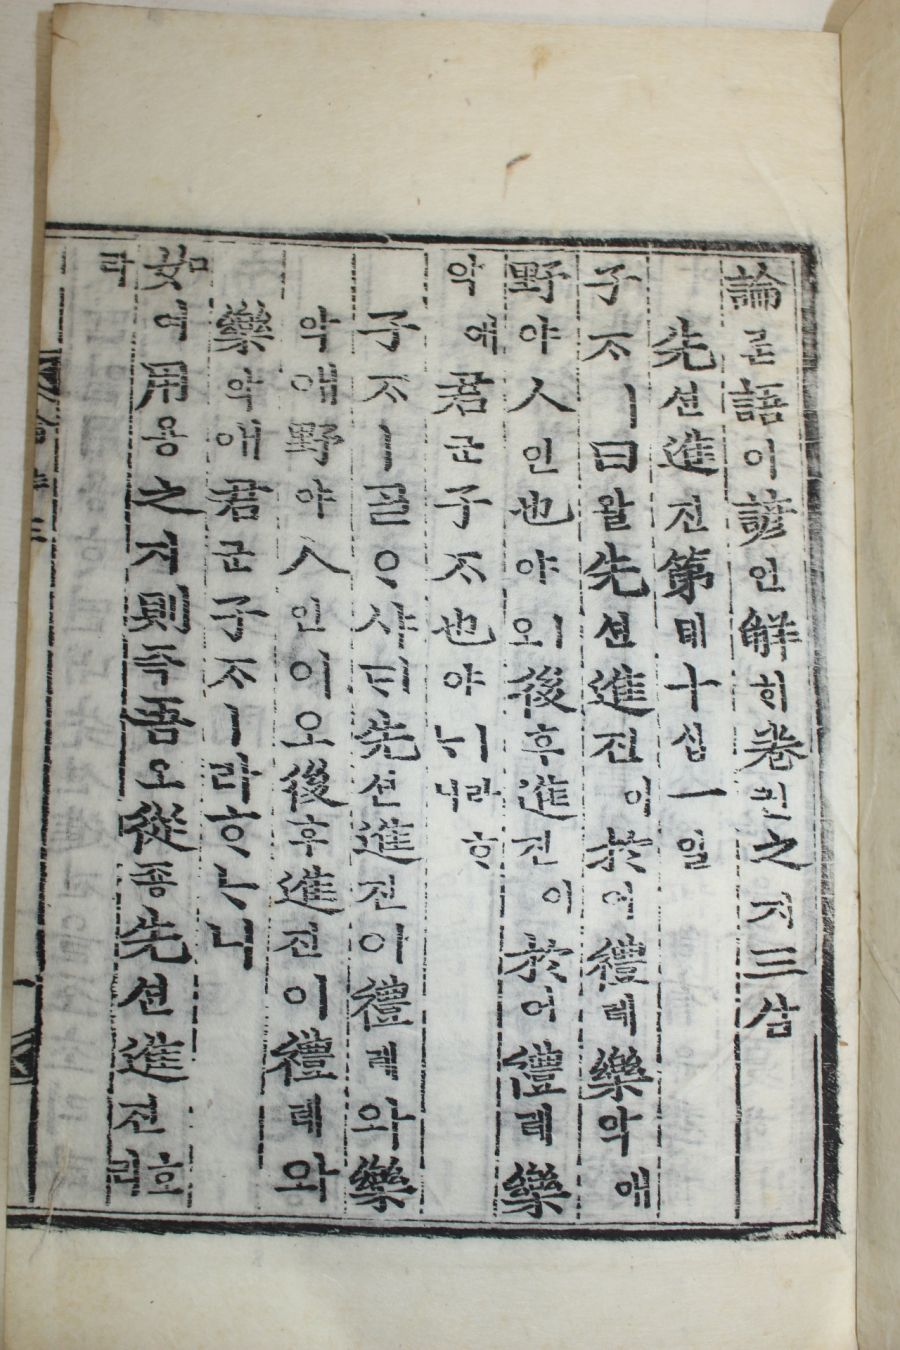 論론語어諺언解ᄒᆡ卷권之지三삼
先션進진第뎨十십一일
子ᄌᆞㅣ曰왈先션進진이於어禮례樂악애
野야人인也야오ㅣ後후進진이於어禮례樂
악애君군子ᄌᆞ也야ㅣ라ᄒᆞᄂᆞ니
子ᄌᆞㅣᄀᆞᆯᄋᆞ샤ᄃᆡ先션進진이禮례와樂
악애野야人인이오後후進진이禮례와
樂악애君군子ᄌᆞㅣ라ᄒᆞᄂᆞ니
如여用용之지則즉吾오從죵先션進진호리
라